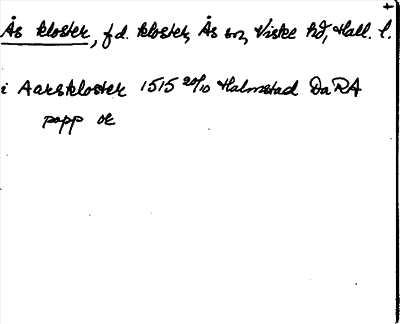 Ås kloster, f.d. kloster, Ås sn, Viske hd, Hall. l.
i Aarskloster 1515 20/10 Halmstad DaRA
papp or